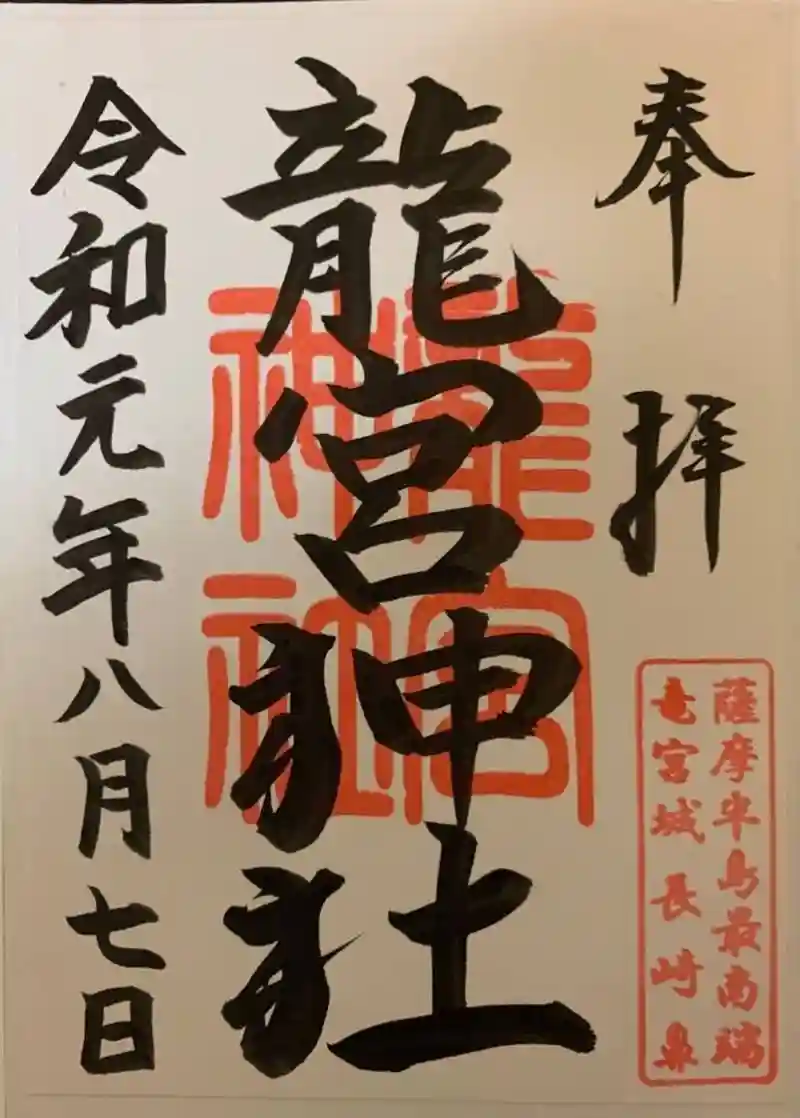 奉拝
薩摩半島最南端
竜宮城 長崎鼻
龍宮神社
龍宮
神社
令和元年八月七日